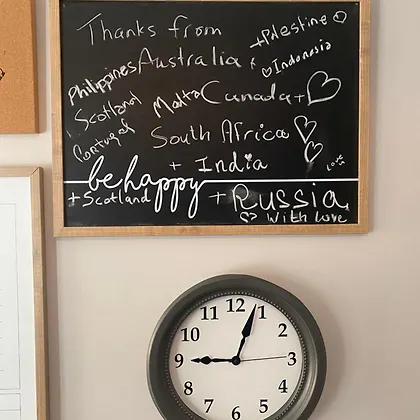 Thanks from
+ Palestine
Philippines Australia +
Indonesia
Scotland Malta Canada +
Portugal South Africa
+ India
Love
be happy
+ Scotland + Russia
With Love
12
1
2
3
4
5
6
7
8
9
10
11